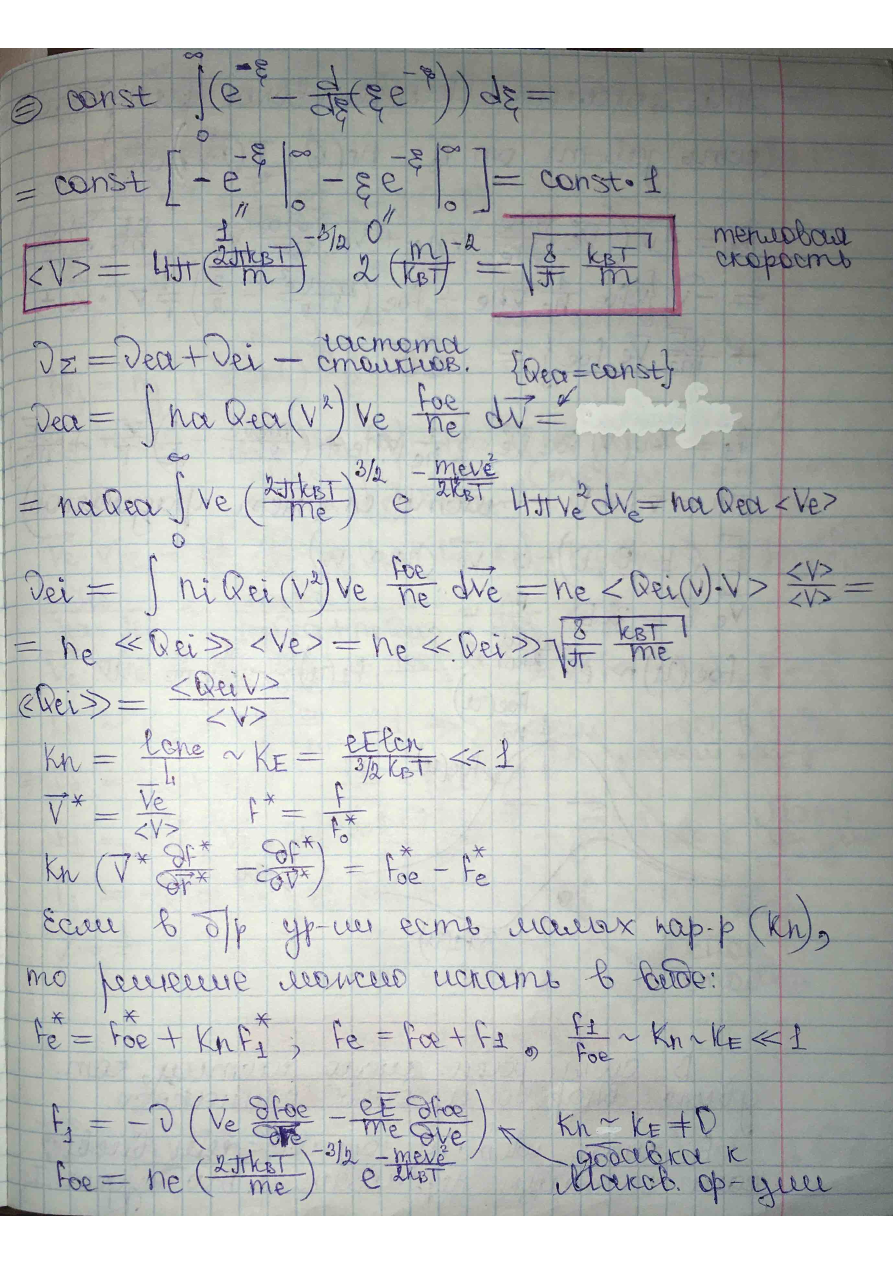 ⊜ const ∫₀^∞ (e^{-ξ} - d/dξ (ξ e^{-ξ})) dξ =
= const [ - e^{-ξ} |₀^∞ - ξ e^{-ξ} |₀^∞ ] = const · 1
1" 0"
<V> = 4π (2πkвT/m)^{-3/2} 2 (m/kвT)^{-2} = √(8/π kвT/m) тепловая скорость
ν_Σ = νea + νei – частота столкнов. {Qea = const}
νea = ∫ na Qea(V²) Ve foe/ne dV⃗ =
= na Qea ∫₀^∞ Ve (2πkвT/me)^{3/2} e^{-meVe²/2kвT} 4πVe² dVe = na Qea <Ve>
νei = ∫ ni Qei(V²) Ve foe/ne dV⃗e = ne <Qei(V)·V> <V>/<V> =
= ne ≪Qei≫ <Ve> = ne ≪Qei≫ √(8/π kвT/me)
≪Qei≫ = <Qei V>/<V>
Kn = lсп e/L ~ KE = eElсп/(3/2 kвT) ≪ 1
V⃗* = V̄e/<V> f* = f/fo*
Kn (V⃗* ∂f*/∂r⃗* - ∂f*/∂V⃗*) = foe* - fe*
Если в б/р ур-ии есть малых пар-р (Kn),
то решение можно искать в виде:
fe* = foe* + Kn f1*; fe = foe + f1, f1/foe ~ Kn ~ KE ≪ 1
f1 = -ν (V̄e ∂foe/∂re - eĒ/me ∂foe/∂Ve) Kn ~ KE ≠ 0
добавка к
foe = ne (2πkвT/me)^{-3/2} e^{-meVe²/2kвT} Максв. ф-ции